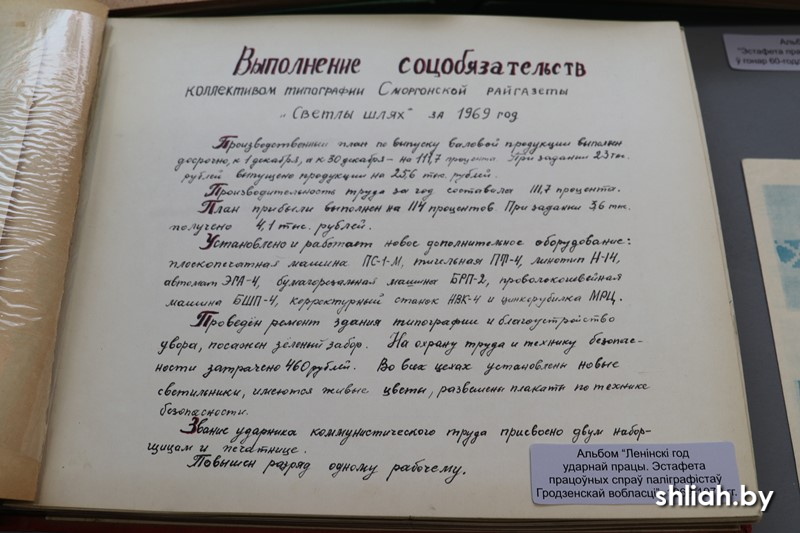 Выполнение соцобязательств
коллективом типографии Сморгонской райгазеты
„Светлы шлях" за 1969 год
Производственный план по выпуску валовой продукции выполнен
досрочно, к 1 декабря, а к 30 декабря – на 111,7 процента. При задании 23 тыс.
рублей выпущено продукции на 25,6 тыс. рублей.
Производительность труда за год составила 111,7 процента.
План прибыли выполнен на 114 процентов. При задании 3,6 тыс.
получено 4,1 тыс. рублей.
Установлено и работает новое дополнительное оборудование:
плоскопечатная машина ПС-1-М, тигельная ПТ-4, линотип Н-14,
автомат ЭРА-4, бумагорезальная машина БРП-2, проволокошвейная
машина БШП-4, корректурный станок НВК-4 и цинкорубилка МРЦ.
Проведён ремонт здания типографии и благоустройство
двора, посажен зелёный забор. На охрану труда и технику безопас-
ности затрачено 460 рублей. Во всех цехах установлены новые
светильники, имеются живые цветы, развешены плакаты по технике
безопасности.
Звание ударника коммунистического труда присвоено двум набор-
щицам и печатнице.
Повышен разряд одному рабочему.
Альбом "Ленінскі год
ударнай працы. Эстафета
працоўных спраў паліграфістаў
Гродзенскай вобласці"
гг.
Альб
"Эстафета пра
ў гонар 60-год
shliah.by